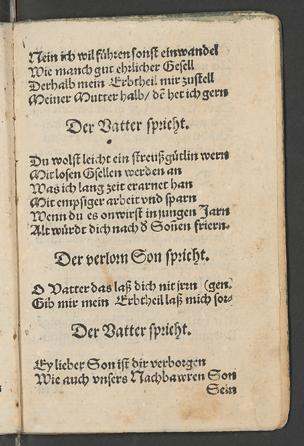 Nein ich wil führen sonst ein wandel
Wie manch gut ehrlicher Gesell
Derhalb mein Erbtheil mir zustell
Meiner Mutter halb/ dē het ich gern
Der Vatter spricht.
Du wolst leicht ein streußgütlin wern
Mit losen Gsellen werden an
Was ich lang zeit erarnet han
Mit empsiger arbeit vnd sparn
Wenn du es onwirst in jungen Jarn
Alt würdt dich nach d Soñen friern.
Der verlorn Son spricht.
O Vatter das laß dich nit jrrn (gen.
Gib mir mein Erbtheil laß mich sor-
Der Vatter spricht.
Ey lieber Son ist dir verborgen
Wie auch vnsers Nachbawren Son
Sein